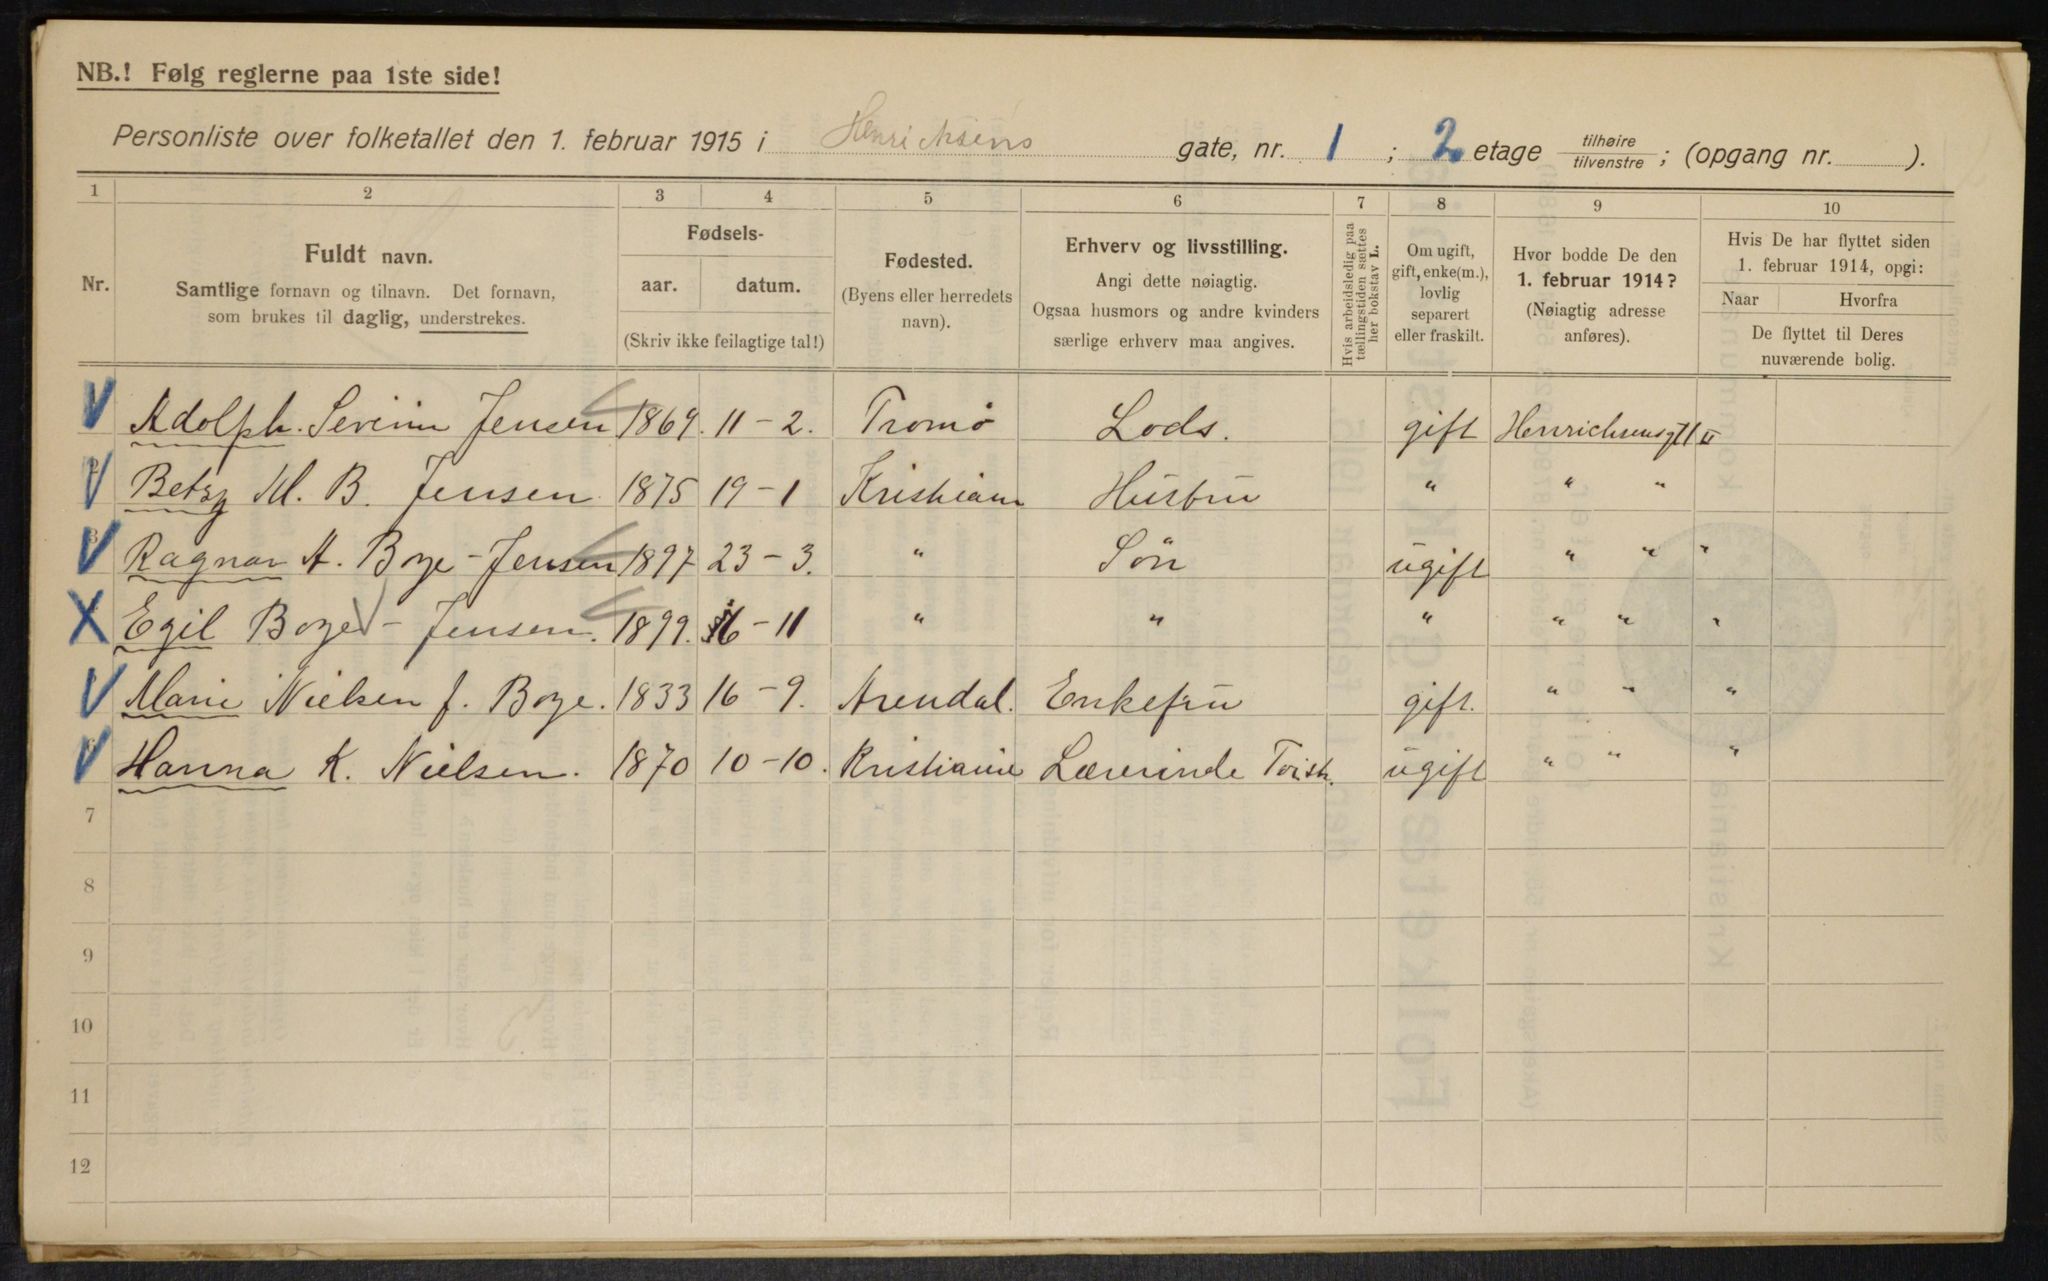 NB.! Følg reglerne paa 1ste side!
Personliste over folketallet den 1. februar 1915 i Henrichsens gate, nr. 1 ; 2 etage tilhøire / tilvenstre ; (opgang nr. ).
1 2 3 4 5 6 7 8 9 10
Nr.
Fuldt navn.
Samtlige fornavn og tilnavn. Det fornavn,
som brukes til daglig, understrekes.
Fødsels-
aar. datum.
(Skriv ikke feilagtige tal!)
Fødested.
(Byens eller herredets
navn).
Erhverv og livsstilling.
Angi dette nøiagtig.
Ogsaa husmors og andre kvinders
særlige erhverv maa angives.
Hvis arbeidsledig paa
tællingstiden sættes
her bokstav L.
Om ugift,
gift, enke(m.),
lovlig
separert
eller fraskilt.
Hvor bodde De den
1. februar 1914?
(Nøiagtig adresse
anføres).
Hvis De har flyttet siden
1. februar 1914, opgi:
Naar Hvorfra
De flyttet til Deres
nuværende bolig.
Adolph. Severin Jensen 1869. 11-2. Tromø Lods. gift Henrichsensgt 1 II
Betzy M. B. Jensen 1875 19-1 Kristiania Husfru " " "
Ragnar A. Boye-Jensen 1897 23-3. " Sön ugift " " "
Egil Boye-Jensen. 1899. 16-11 " " " " " "
Marie Nielsen f. Boye. 1833 16-9. Arendal. Enkefru gift. " " "
Hanna K. Nielsen. 1870 10-10. Kristiania Lærerinde ugift " " "
7
8
9
10
11
12